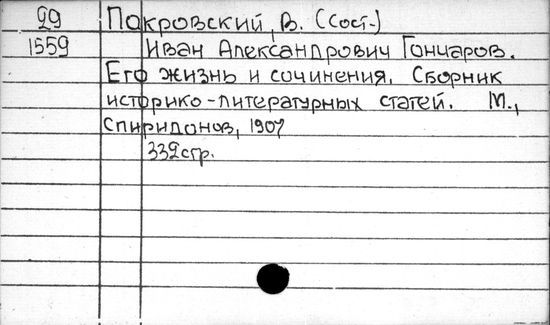 29 Покровский, В. (сост.)
1559 Иван Александрович Гончаров.
Его жизнь и сочинения. Сборник
историко-литературных статей. М.,
Спиридонов, 1907
332стр.